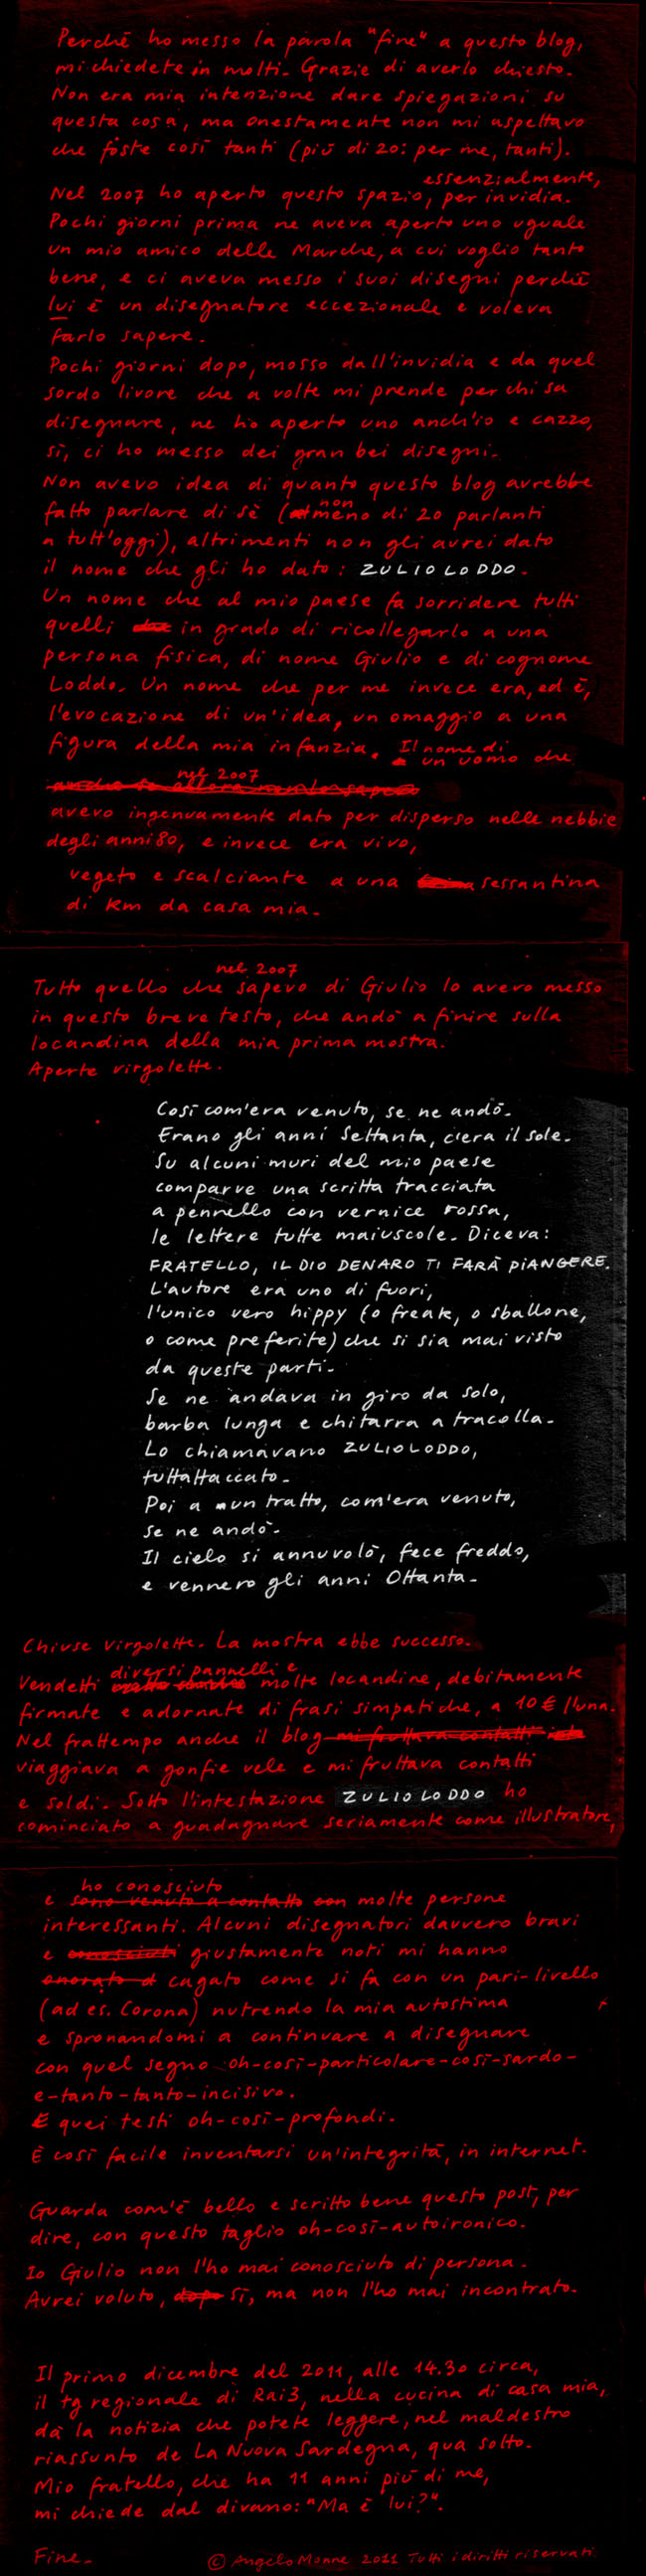 Perchè ho messo la parola "fine" a questo blog,
mi chiedete in molti. Grazie di averlo chiesto.
Non era mia intenzione dare spiegazioni su
questa cosa, ma onestamente non mi aspettavo
che foste così tanti (più di 20: per me, tanti).
essenzialmente,
Nel 2007 ho aperto questo spazio, per invidia.
Pochi giorni prima ne aveva aperto uno uguale
un mio amico delle Marche, a cui voglio tanto
bene, e ci aveva messo i suoi disegni perchè
lui è un disegnatore eccezionale e voleva
farlo sapere.
Pochi giorni dopo, mosso dall'invidia e da quel
sordo livore che a volte mi prende per chi sa
disegnare, ne ho aperto uno anch'io e cazzo,
sì, ci ho messo dei gran bei disegni.
Non avevo idea di quanto questo blog avrebbe
non
fatto parlare di sè (meno di 20 parlanti
a tutt'oggi), altrimenti non gli avrei dato
il nome che gli ho dato: ZULIOLODDO.
Un nome che al mio paese fa sorridere tutti
quelli in grado di ricollegarlo a una
persona fisica, di nome Giulio e di cognome
Loddo. Un nome che per me invece era, ed è,
l'evocazione di un'idea, un omaggio a una
figura della mia infanzia. Il nome di
un uomo che
nel 2007
avevo ingenuamente dato per disperso nelle nebbie
degli anni 80, e invece era vivo,
vegeto e scalciante a una sessantina
di km da casa mia.
nel 2007
Tutto quello che sapevo di Giulio lo avevo messo
in questo breve testo, che andò a finire sulla
locandina della mia prima mostra.
Aperte virgolette.
Così com'era venuto, se ne andò.
Erano gli anni Settanta, c'era il sole.
Su alcuni muri del mio paese
comparve una scritta tracciata
a pennello con vernice rossa,
le lettere tutte maiuscole. Diceva:
FRATELLO, IL DIO DENARO TI FARÀ PIANGERE.
L'autore era uno di fuori,
l'unico vero hippy (o freak, o sballone,
o come preferite) che si sia mai visto
da queste parti.
Se ne andava in giro da solo,
barba lunga e chitarra a tracolla.
Lo chiamavano ZULIOLODDO,
tuttattaccato.
Poi a un tratto, com'era venuto,
se ne andò.
Il cielo si annuvolò, fece freddo,
e vennero gli anni Ottanta.
Chiuse virgolette. La mostra ebbe successo.
diversi pannelli e
Vendetti molte locandine, debitamente
firmate e adornate di frasi simpatiche, a 10 € l'una.
Nel frattempo anche il blog mi fruttava contatti
viaggiava a gonfie vele e mi fruttava contatti
e soldi. Sotto l'intestazione ZULIOLODDO ho
cominciato a guadagnare seriamente come illustratore,
ho conosciuto
e sono venuto a contatto con molte persone
interessanti. Alcuni disegnatori davvero bravi
e conosciuti giustamente noti mi hanno
onorato d cagato come si fa con un pari-livello
(ad es. Corona) nutrendo la mia autostima
e spronandomi a continuare a disegnare
con quel segno oh-così-particolare-così-sardo-
e-tanto-tanto-incisivo.
E quei testi oh-così-profondi.
È così facile inventarsi un'integrità, in internet.
Guarda com'è bello e scritto bene questo post, per
dire, con questo taglio oh-così-autoironico.
Io Giulio non l'ho mai conosciuto di persona.
Avrei voluto, dopo sì, ma non l'ho mai incontrato.
Il primo dicembre del 2011, alle 14.30 circa,
il tg regionale di Rai3, nella cucina di casa mia,
dà la notizia che potete leggere, nel maldestro
riassunto de La Nuova Sardegna, qua sotto.
Mio fratello, che ha 11 anni più di me,
mi chiede dal divano: "Ma è lui?".
Fine.
© Angelo Monne 2011 Tutti i diritti riservati